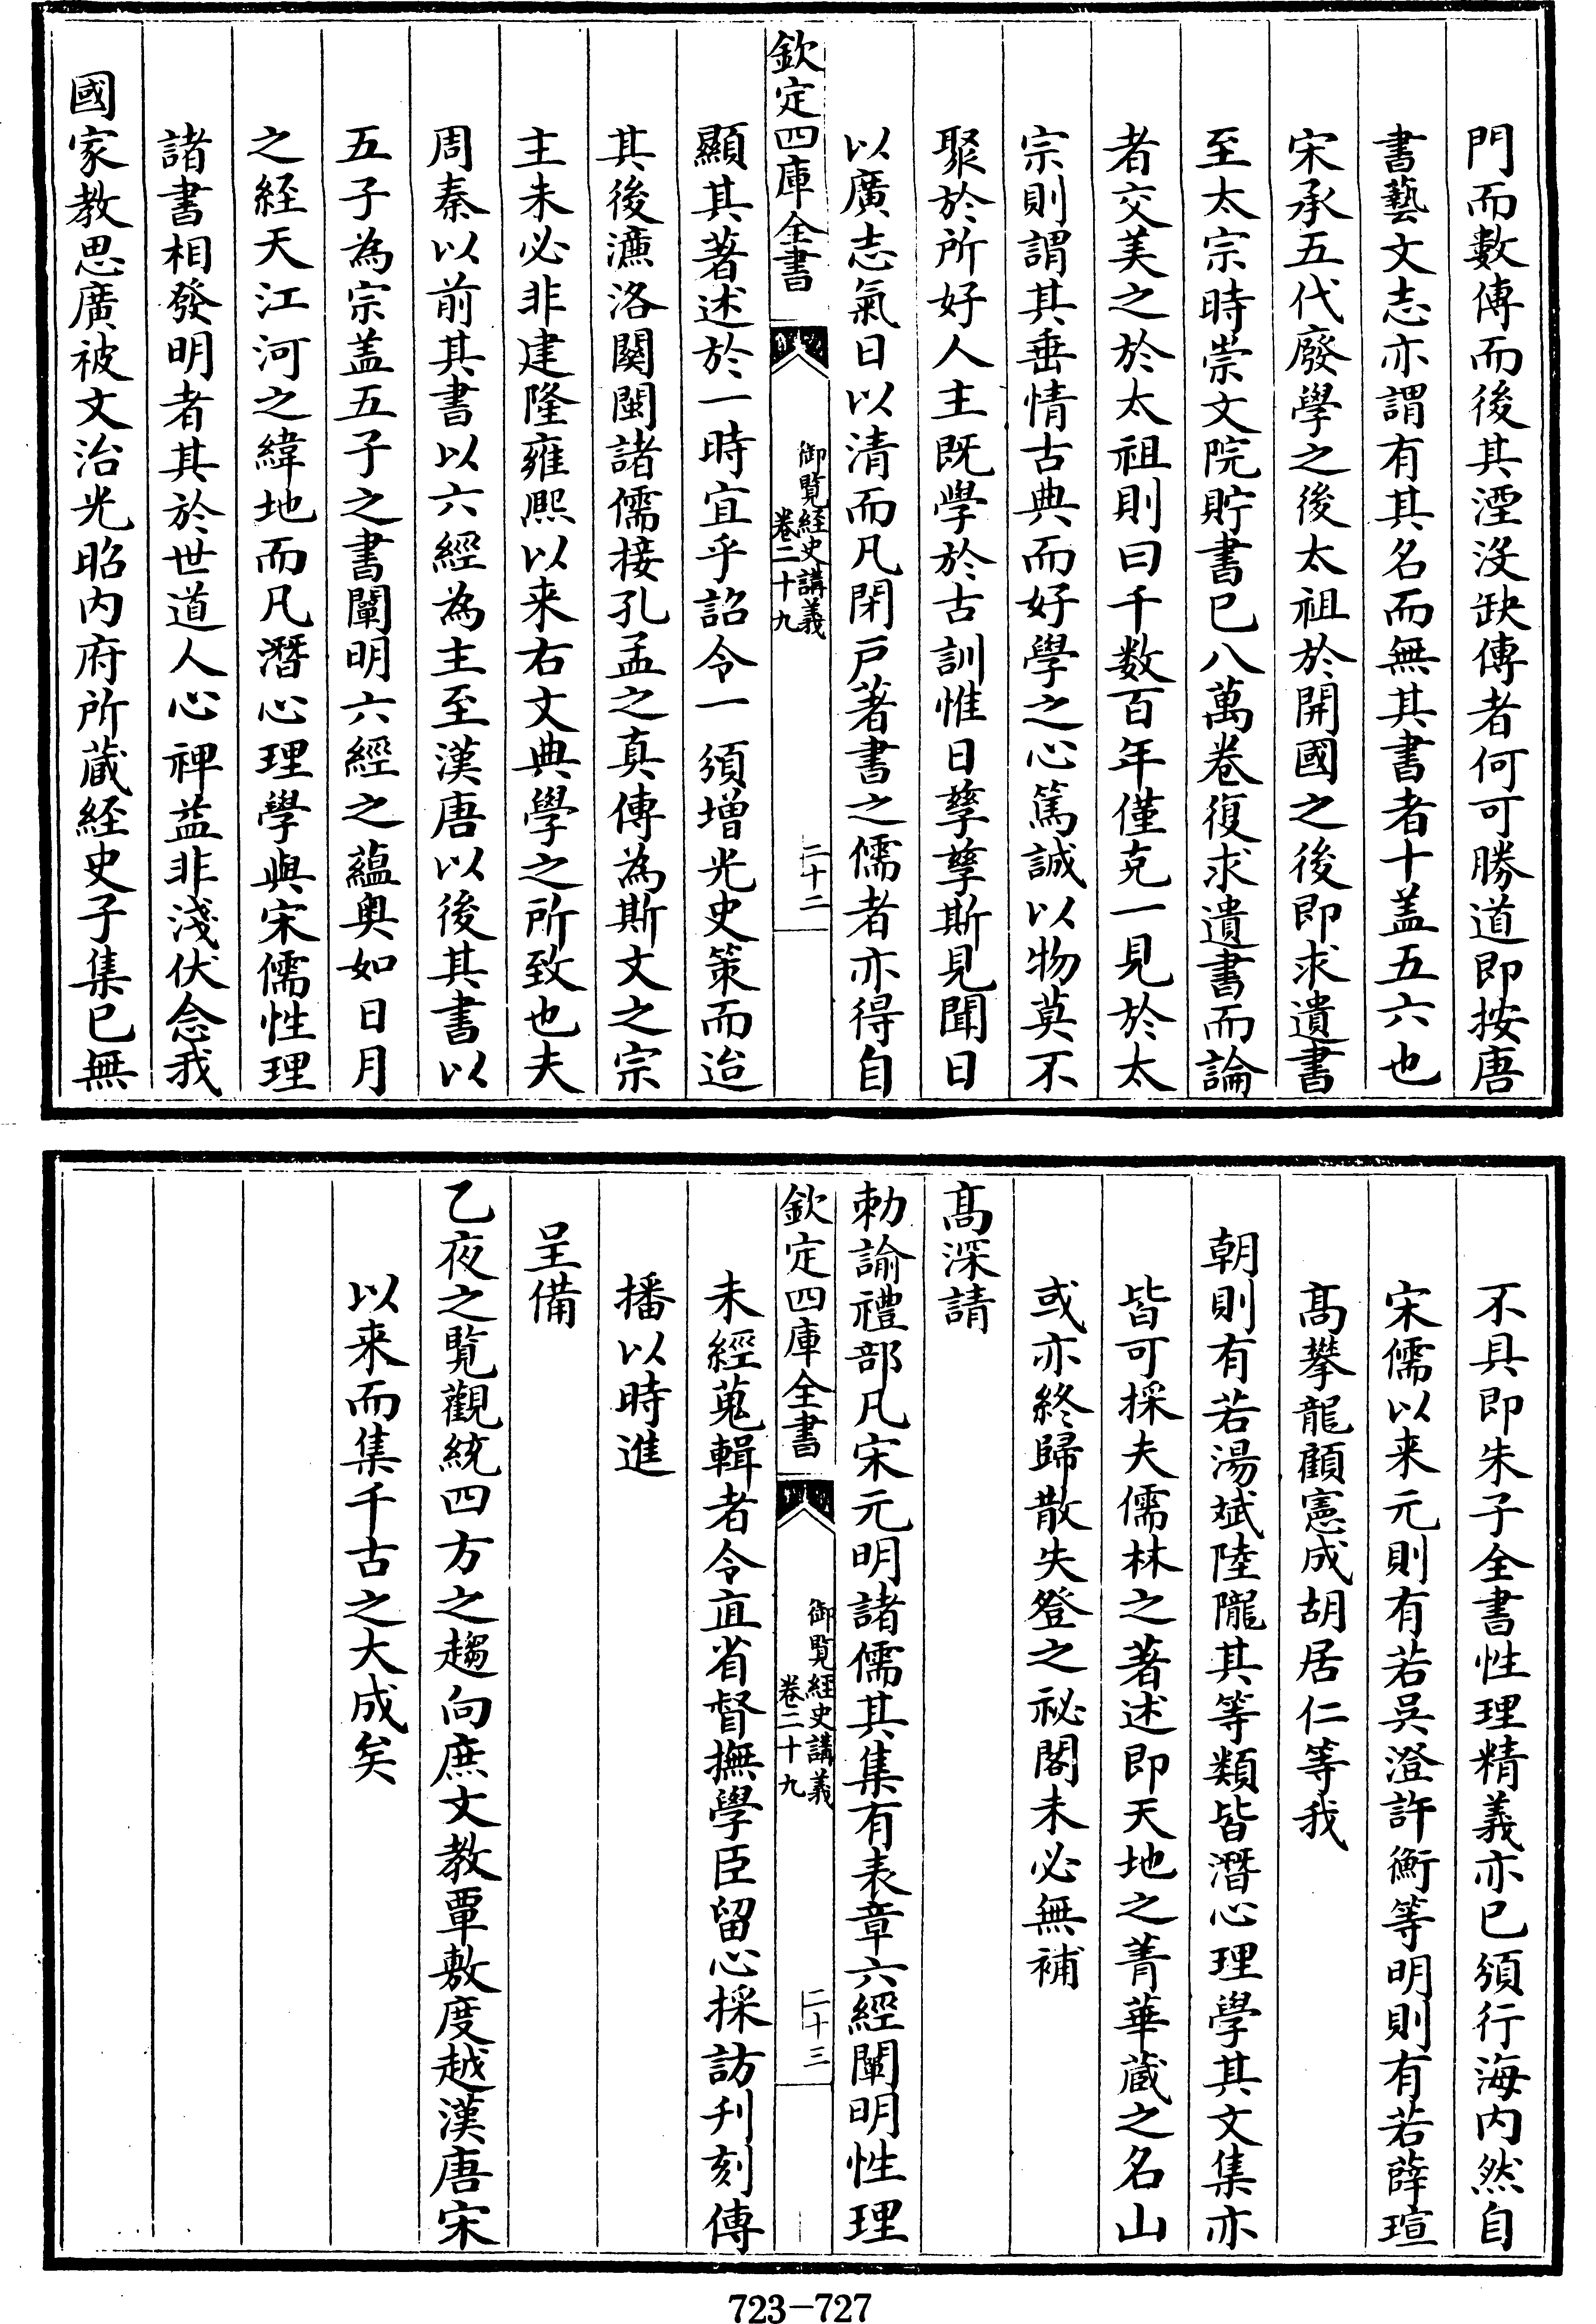 門而數傳而後其湮沒缺傳者何可勝道即按唐
書藝文志亦謂有其名而無其書者十盖五六也
宋承五代廢學之後太祖於開國之後即求遺書
至太宗時崇文院貯書已八萬卷復求遺書而論
者交美之於太祖則曰千数百年僅克一見於太
宗則謂其垂情古典而好學之心篤誠以物莫不
聚於所好人主既學於古訓惟日孳孳斯見聞日
以廣志氣日以清而凡閉戸著書之儒者亦得自
欽定四庫全書
御覧經史講義
卷二十九
二十二
顯其著述於一時宜乎詔令一頒增光史策而迨
其後濂洛關閩諸儒接孔孟之真傳為斯文之宗
主未必非建隆雍熙以来右文典學之所致也夫
周秦以前其書以六經為主至漢唐以後其書以
五子為宗盖五子之書闡明六經之蘊奥如日月
之経天江河之緯地而凡潛心理學與宋儒性理
諸書相發明者其於世道人心裨益非淺伏念我
國家教思廣被文治光昭内府所蔵経史子集已無
不具即朱子全書性理精義亦已頒行海内然自
宋儒以来元則有若吳澄許衡等明則有若薛瑄
髙攀龍顧憲成胡居仁等我
朝則有若湯斌陸隴其等類皆潛心理學其文集亦
皆可採夫儒林之著述即天地之菁華蔵之名山
或亦終歸散失登之祕閣未必無補
髙深請
勅諭禮部凡宋元明諸儒其集有表章六經闡明性理
欽定四庫全書
御覧經史講義
卷二十九
二十三
未經蒐輯者令直省督撫學臣留心採訪刋刻傳
播以時進
呈備
乙夜之覧觀統四方之趨向庶文教覃敷度越漢唐宋
以来而集千古之大成矣
723-727